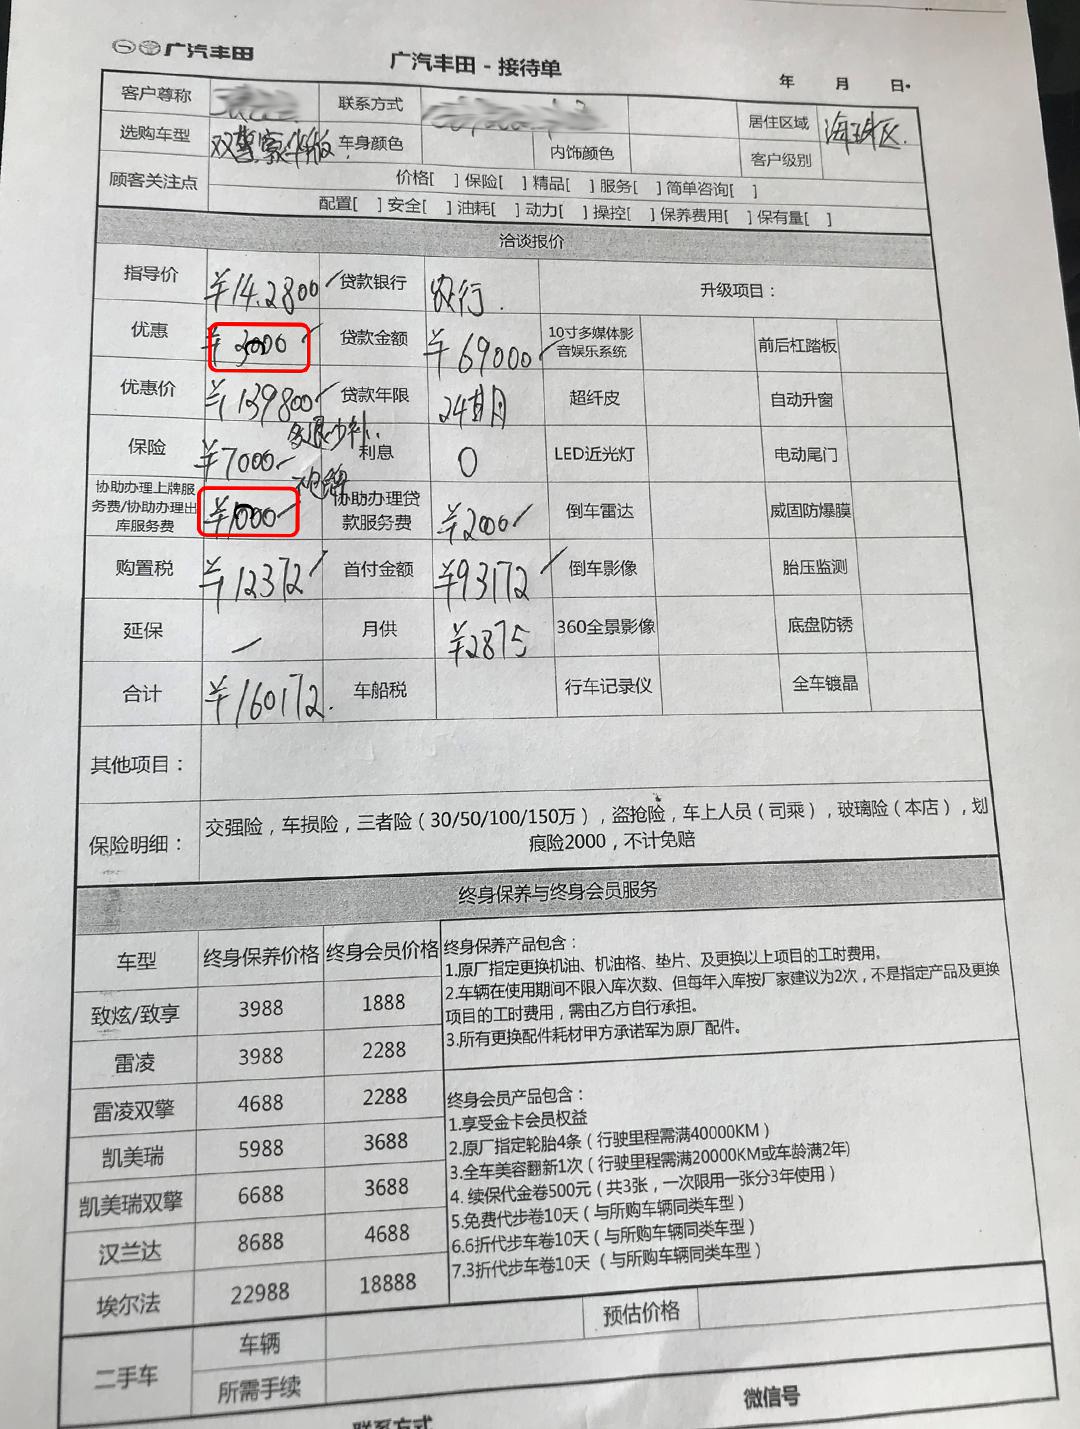 广汽丰田
广汽丰田 - 接待单
年 月 日
客户尊称 联系方式 居住区域 海珠区.
选购车型 双擎豪华版 车身颜色 内饰颜色 客户级别
顾客关注点 价格[ ] 保险[ ] 精品[ ] 服务[ ] 简单咨询[ ]
配置[ ] 安全[ ] 油耗[ ] 动力[ ] 操控[ ] 保养费用[ ] 保有量[ ]
洽谈报价
指导价 ¥14.2800 贷款银行 农行. 升级项目：
优惠 ¥3000 贷款金额 ¥69000 10寸多媒体影音娱乐系统 前后杠踏板
优惠价 ¥139800 贷款年限 24个月 超纤皮 自动升窗
保险 ¥7000 多退少补. 利息 0 LED近光灯 电动尾门
协助办理上牌服务费/协助办理出库服务费 ¥1000 协助办理贷款服务费 ¥2000 倒车雷达 威固防爆膜
购置税 ¥12372 首付金额 ¥93172 倒车影像 胎压监测
延保 — 月供 ¥2875 360全景影像 底盘防锈
合计 ¥160172. 车船税 行车记录仪 全车镀晶
其他项目：
保险明细： 交强险，车损险，三者险（30/50/100/150万），盗抢险，车上人员（司乘），玻璃险（本店），划
痕险2000，不计免赔
终身保养与终身会员服务
车型 终身保养价格 终身会员价格
致炫/致享 3988 1888
雷凌 3988 2288
雷凌双擎 4688 2288
凯美瑞 5988 3688
凯美瑞双擎 6688 3688
汉兰达 8688 4688
埃尔法 22988 18888
终身保养产品包含：
1.原厂指定更换机油、机油格、垫片、及更换以上项目的工时费用。
2.车辆在使用期间不限入库次数、但每年入库按厂家建议为2次，不是指定产品及更换
项目的工时费用，需由乙方自行承担。
3.所有更换配件耗材甲方承诺军为原厂配件。
终身会员产品包含：
1.享受金卡会员权益
2.原厂指定轮胎4条（行驶里程需满40000KM）
3.全车美容翻新1次（行驶里程需满20000KM或车龄满2年)
4. 续保代金卷500元（共3张，一次限用一张分3年使用）
5.免费代步卷10天（与所购车辆同类车型）
6.6折代步车卷10天（与所购车辆同类车型）
7.3折代步车卷10天（与所购车辆同类车型）
二手车 车辆 预估价格
所需手续
联系方式 微信号